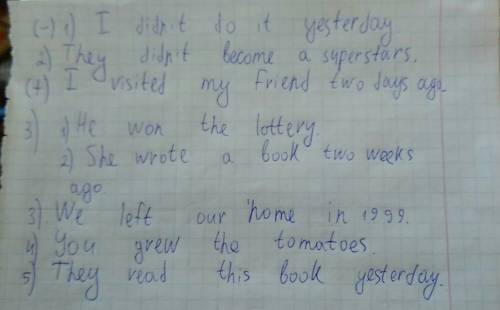 (-) 1) I didn't do it yesterday
2) They didn't become a superstars.
(+) I visited my friend two days ago
3) 1) He won the lottery.
2) She wrote a book two weeks
ago
3) We left our home in 1999.
4) You grew the tomatoes.
5) They read this book yesterday.